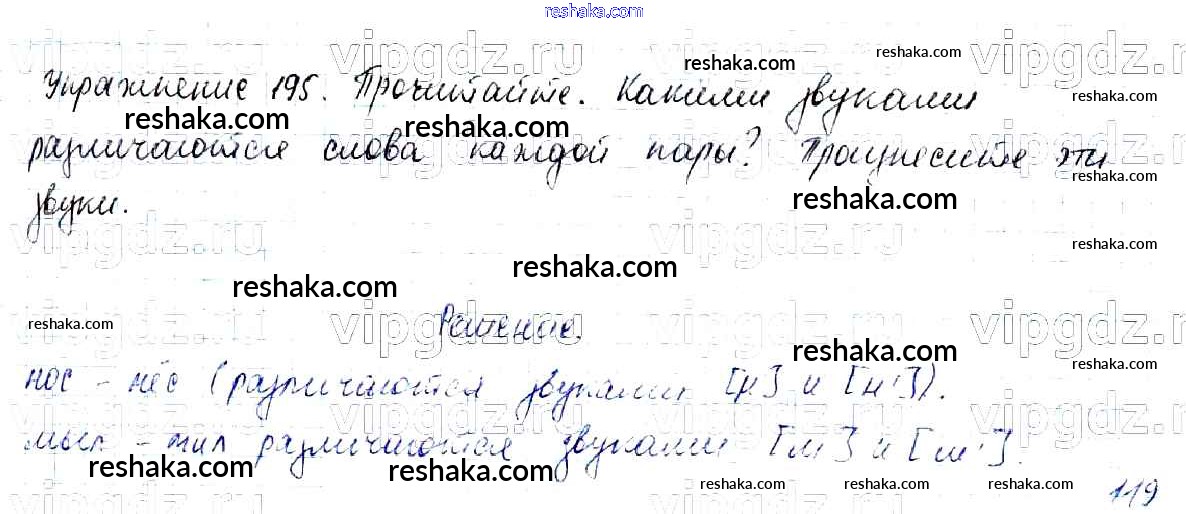 reshaka.com
Упражнение 195. Прочитайте. Какими звуками
различаются слова каждой пары? Произнесите эти
звуки.
Решение.
нос - нёс (различаются звуками [н] и [н']).
мыл - мил различаются звуками [м] и [м'].
119